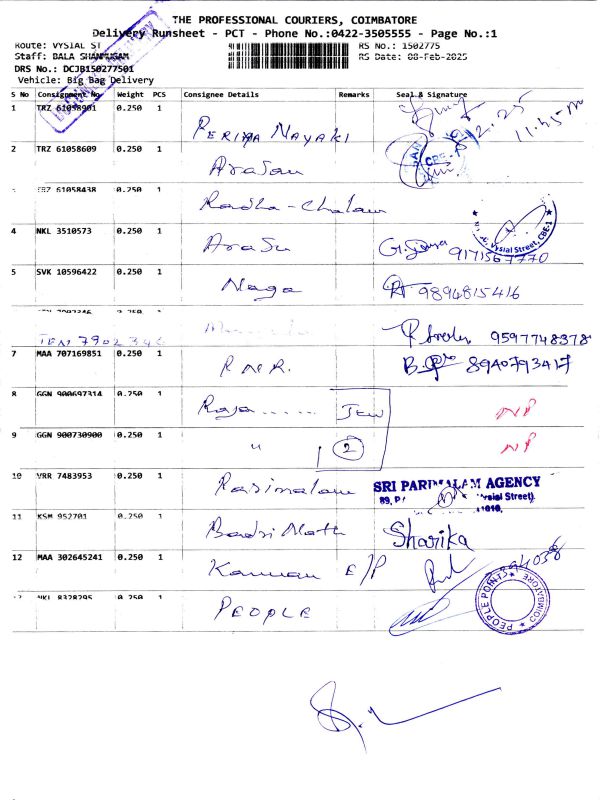 THE PROFESSIONAL COURIERS, COIMBATORE
Delivery Runsheet - PCT - Phone No.:0422-3505555 - Page No.:1
Route: VYSIAL ST RS No.: 1502775
Staff: BALA SHANMUGAM RS Date: 08-Feb-2025
DRS No.: DCJB150277501
Vehicle: Big Bag Delivery
S No Consignment No Weight PCS Consignee Details Remarks Seal & Signature
1 TRZ 61058961 0.250 1
PERIYA NAYAKI 11.45 AM
2 TRZ 61058609 0.250 1
Arasan
61058438 0.250 1
Radha-Chalam
4 NKL 3510573 0.250 1
Arasu 9171567770
Vysial Street, CBE-1
5 SVK 10596422 0.250 1
Naga 9894815416
TEN 7902346 9597748378
7 MAA 707169851 0.250 1
R.M.R. 8940793417
8 GGN 900697314 0.250 1
Raja...... NP
9 GGN 900730900 0.250 1
" 2 NP
10 VRR 7483953 0.250 1
Parimalam SRI PARIMALAM AGENCY
Vysial Street)
11 KSM 952701 0.250 1
Badri Nath Sharika
12 MAA 302645241 0.250 1
Kannan E/P
NKL 8328295 0.250 1
PEOPLE
PEOPLE POINTS COIMBATORE